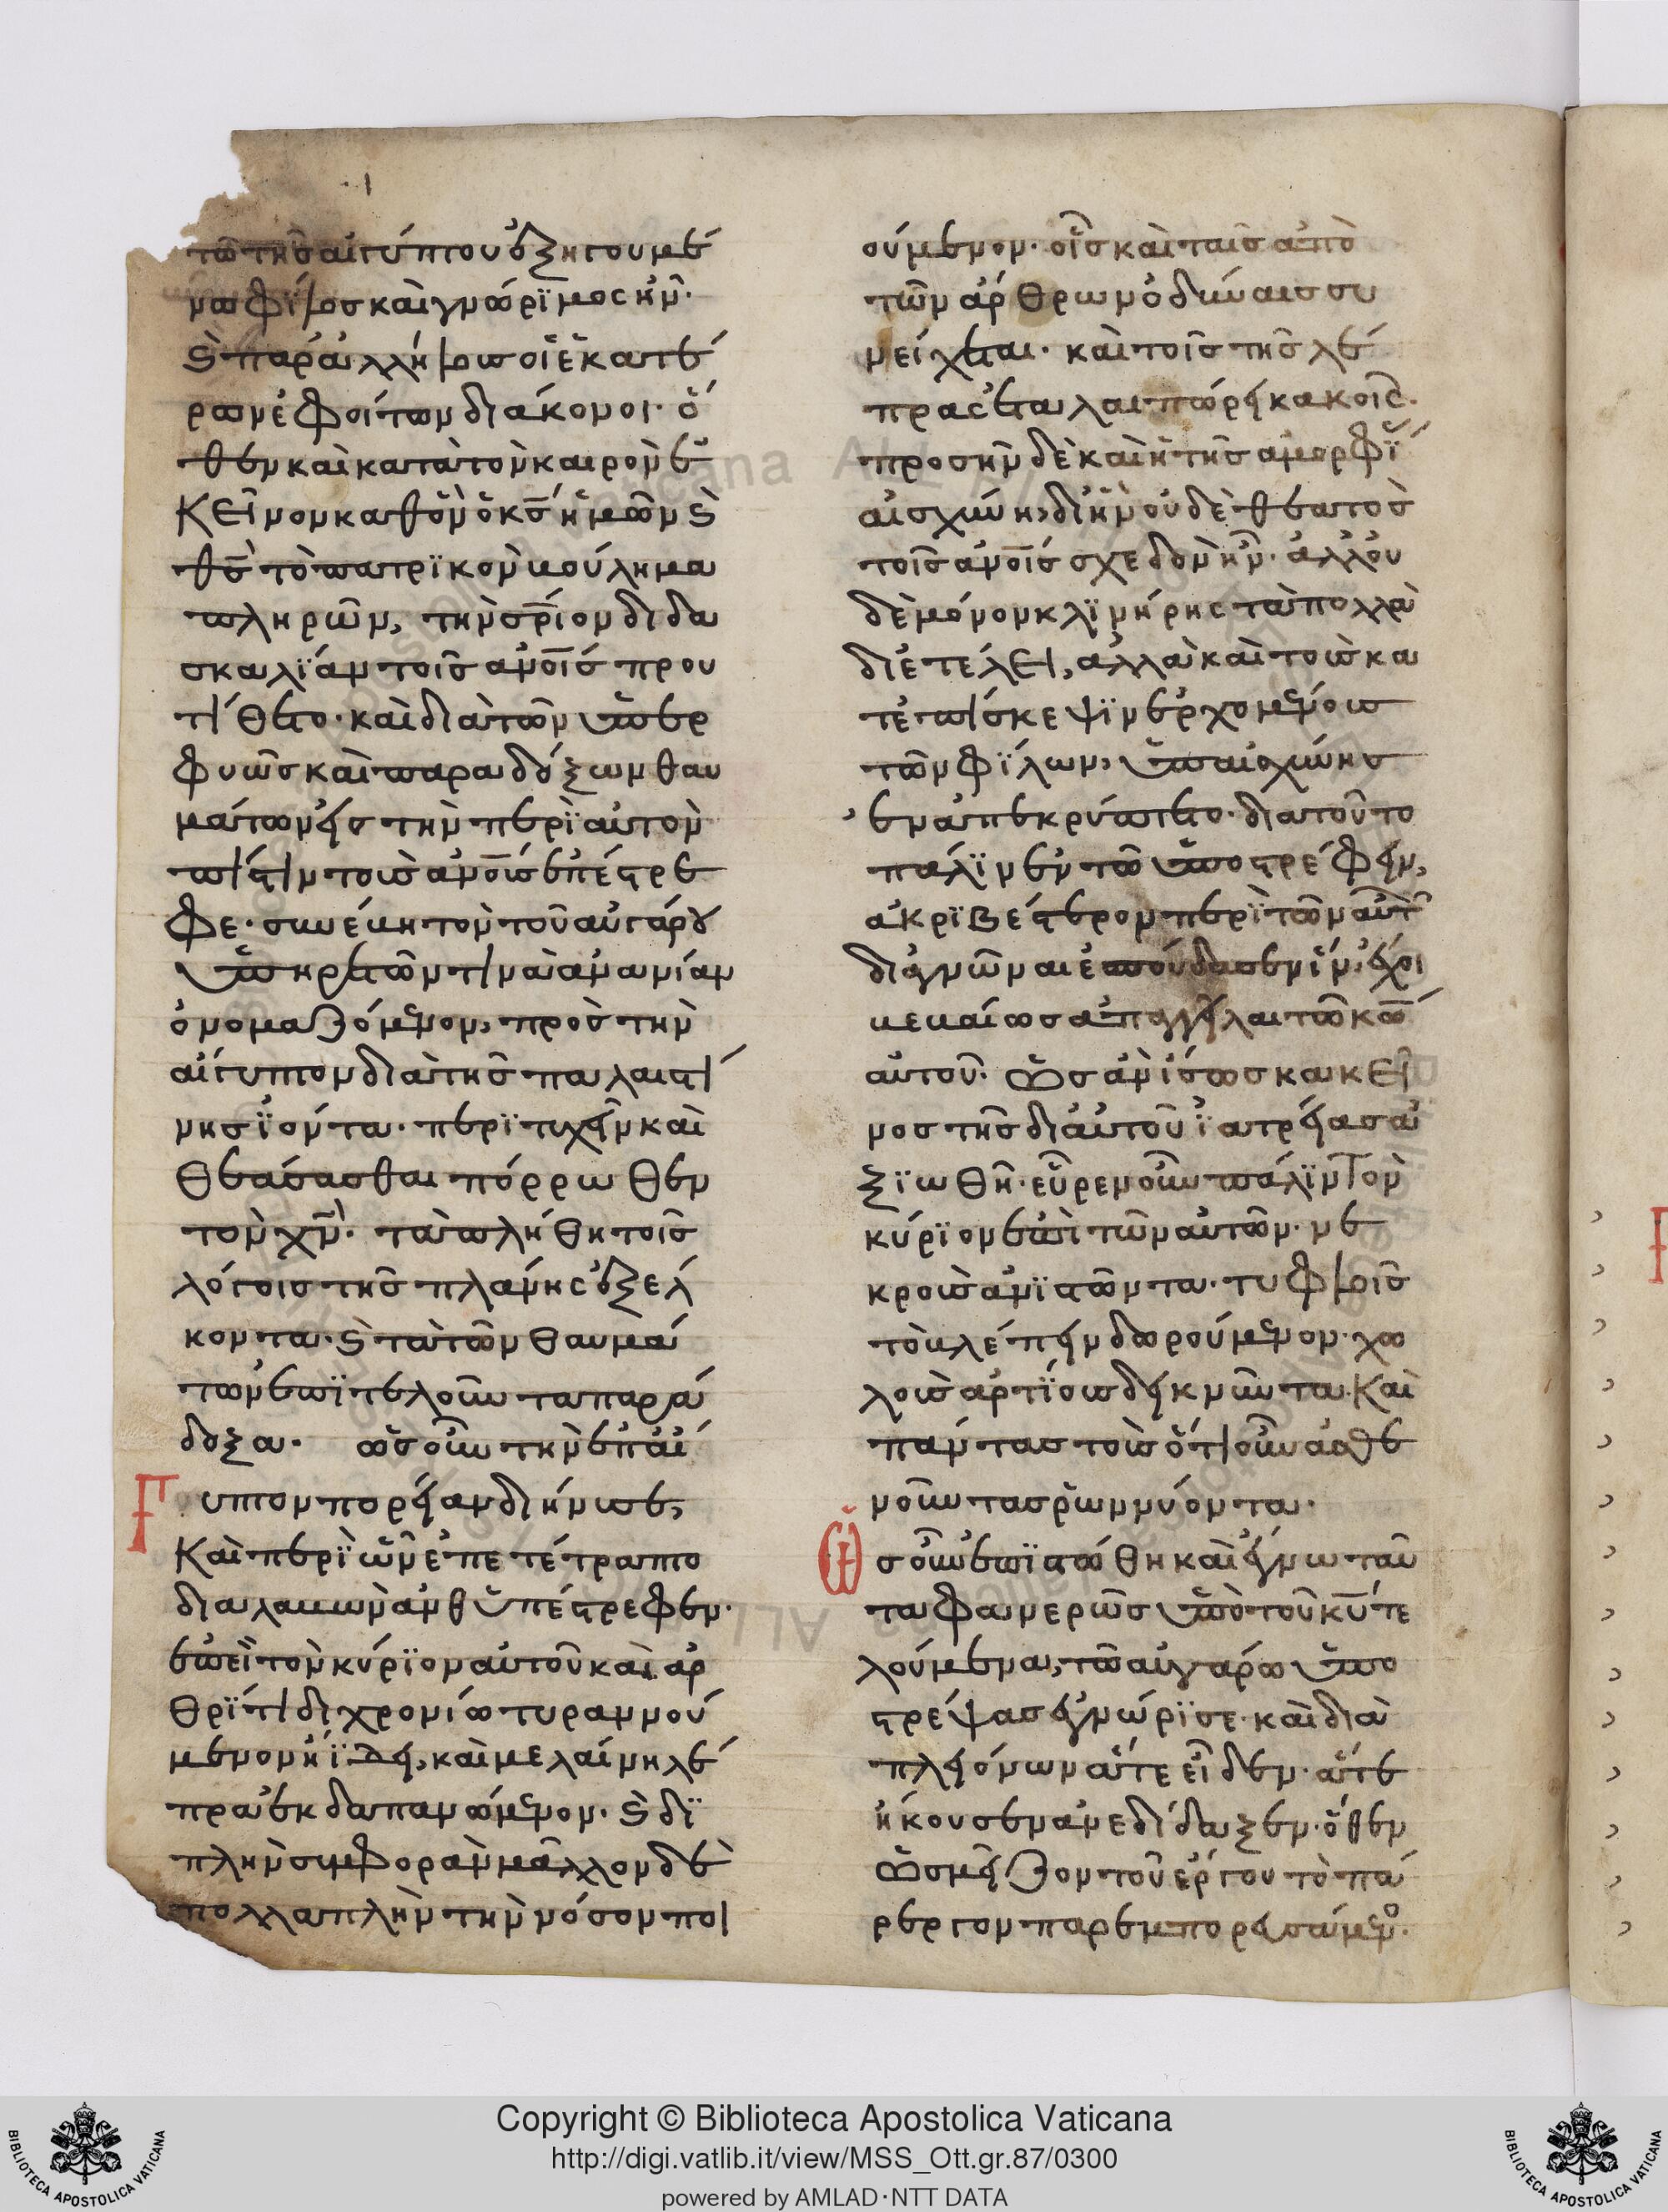 τῶ τῆς αἰγύπτου ἐξηγουμέ
νω φίλος καὶ γνώρϊμος ἦν·
καὶ παραλλήλοις οἱ ἑκατέ
ρων ἐφοίτων διάκονοι· ὅ
θεν καὶ κατὰ τὸν καιρὸν ἐ
κεῖνον καθ ὃν ὁ κς ἡμῶν καὶ
θς τὸ πατρϊκὸν βούλημα
πληρῶν, τὴν σριον διδα
σκαλϊαν τοῖς ἀνοις πρου
τίθετο· καὶ διὰ τῶν ὑπερ
φυῶς καὶ παραδόξων θαυ
μάτων εἰς τὴν περὶ αὐτὸν
πίστιν τοὺς ἀνους ἐπέστρε
φε· συνέβη τὸν τοῦ αὐγάρου
ὑπηρετῶν τινὰ ἀνανίαν
ὀνομαζόμενον, πρὸς τὴν
αἴγυπτον διὰ τῆς παλαιστί
νης ϊόντα· περϊτυχεῖν καὶ
θεάσασθαι πόρρωθεν
τὸν χν· τὰ πλήθη τοῖς
λόγοις τῆς πλάνης ἐξέλ
κοντα· καὶ τὰ τῶν θαυμά
των ἐπϊτελοῦντα παρά
δοξα· ὡς οὖν τὴν ἐπ αἴ
γυπτον πορείαν διήνυσε,
Καὶ περϊ ὧν ἐπετέτραπτο
διαλαβὼν ἀνθυπέστρεφεν·
ἐπεὶ τὸν κύρϊον αὐτοῦ καὶ ἀρ
θρίτιδι χρονίω τυραννού
μενον ἤδει, καὶ μελαίνη λέ
πρα ἐκδαπανώμενον· καὶ δϊ
πλὴν συμφορὰν μᾶλλον δὲ
πολλαπλὴν τὴν νόσον ποι
ούμενον· οἷς καὶ ταῖς ἀπὸ
τῶν ἄρθρων ὀδύναις συ
νείχεται· καὶ τοῖς τῆς λέ
πρας ἐταλαιπώρει κακοῖς·
προσῆν δὲ καὶ ἡ τῆς ἀμορφϊ
αἰσχύνη, δι ἣν οὐδὲ θεατὸς
τοῖς ἀνοις σχεδὸν ἦν· ἀλλ οὐ
δὲ μόνον κλϊνήρης τὰ πολλὰ
διετέλει, ἀλλὰ καὶ τοὺς κα
τ ἐπίσκεψϊν ἐρχομένους
τῶν φϊλων, ὑπ αἰσχύνης
ἐναπεκρύπτετο· διατοῦτο
πάλϊν ἐν τῶ ὑποστρέφειν,
ἀκρϊβέστερον περϊ τῶν αὐτ
διαγνῶναι ἐσπούδασεν ἵν ἔχοι
βεβαίως ἀπαγγεῖλαι τῶ κω
αὐτοῦ· ὡς ἂν ἴσως κακεῖ
νος τῆς δι αὐτοῦ ϊατρείας ἀ
ξϊωθῆ· εὗρεν οὖν πάλϊν τὸν
κύρϊον ἐπὶ τῶν αὐτῶν· νε
κροὺς ἀνϊστῶντα· τυφλοῖς
τὸ βλέπειν δωρούμενον· χω
λοὺς ἀρτϊους δεικνῦντα· Καὶ
πάντας τοὺς ὁτιοῦν ἀσθε
νοῦντας ῥωννύοντα·
Ὡς οὖν ἐπϊστώθη καὶ ἔγνω ταῦ
τα φανερῶς ὑπὸ τοῦ κυ τε
λούμενα, τῶ αὐγάρω ὑπο
στρέψας ἐγνώρϊσε· καὶ διὰ
πλειόνων ἅτε εἶδεν· ἅτε
ἤκουσεν ἀνεδίδαξεν· ὅθεν
ὡς μεῖζον τοῦ ἔργου τὸ πά
ρεργον παρεμπορευσάμενο·
Copyright © Biblioteca Apostolica Vaticana
http://digi.vatlib.it/view/MSS_Ott.gr.87/0300
powered by AMLAD·NTT DATA
BIBLIOTECA APOSTOLICA VATICANA
BIBLIOTECA APOSTOLICA VATICANA